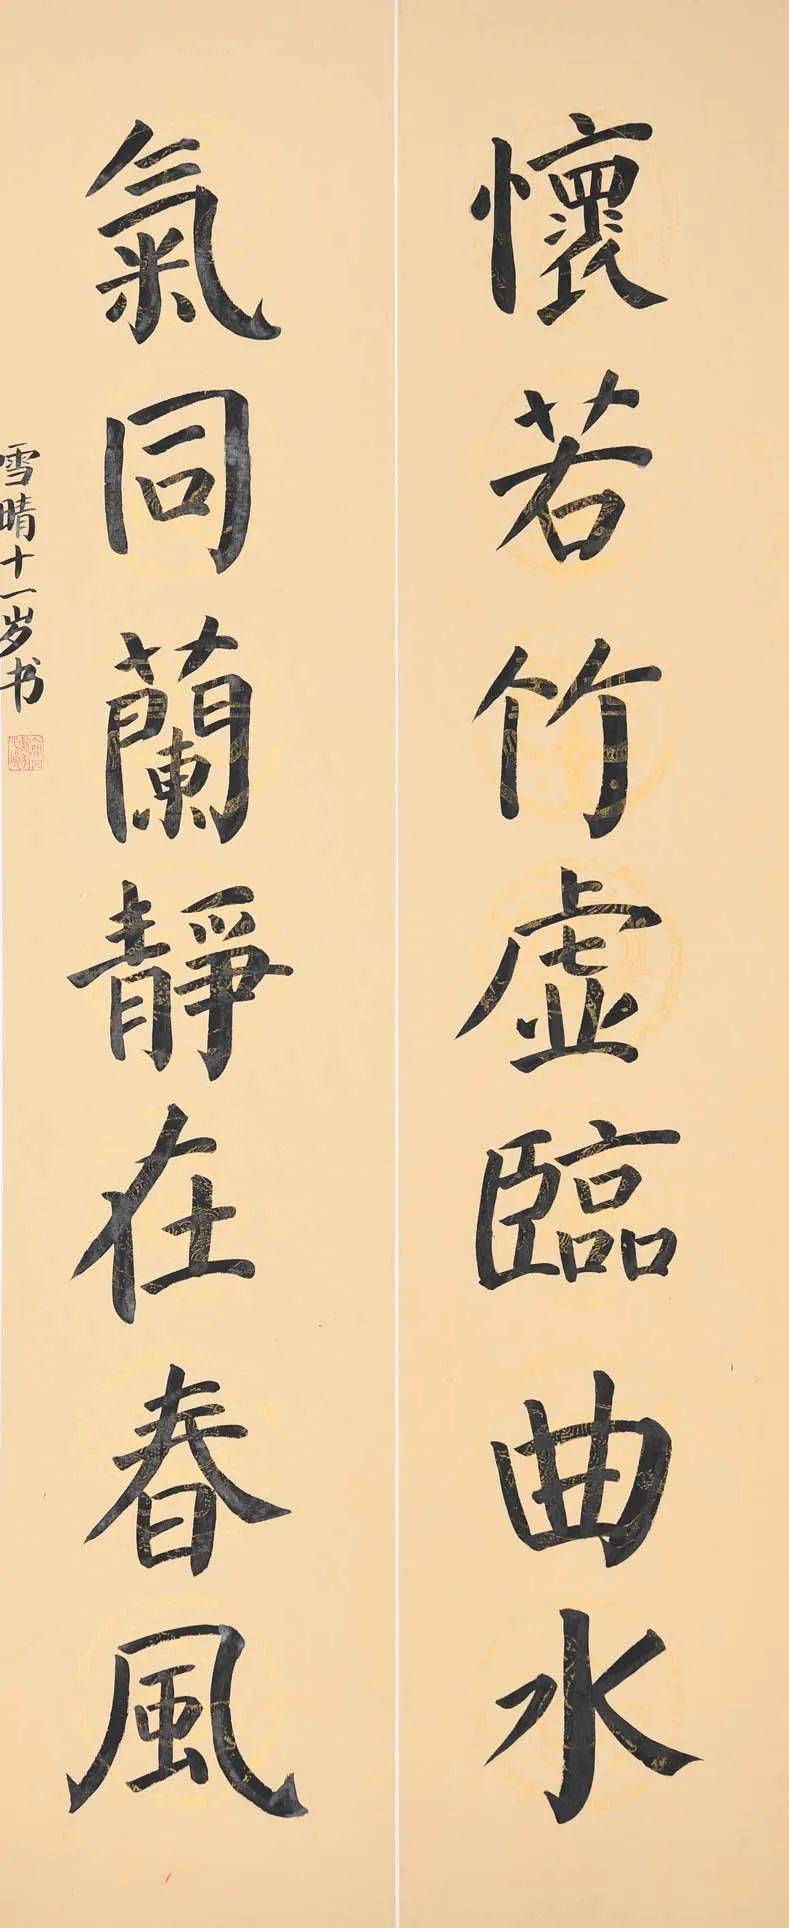 懷若竹虛臨曲水
氣同蘭靜在春風
雪晴十一岁书